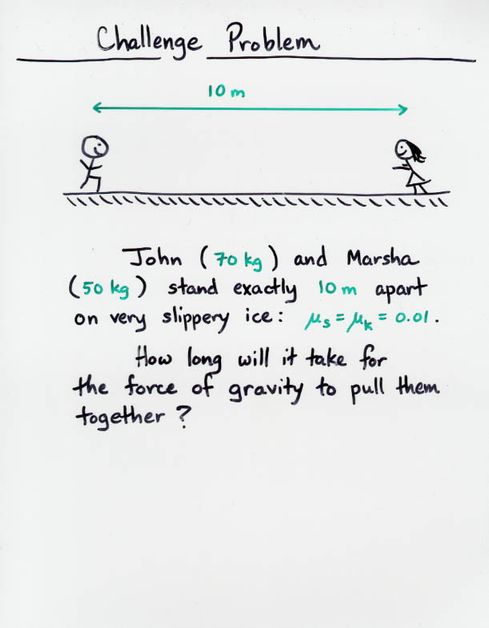 Challenge Problem
10 m
John (70 kg) and Marsha
(50 kg) stand exactly 10 m apart
on very slippery ice: μs = μk = 0.01.
How long will it take for
the force of gravity to pull them
together?